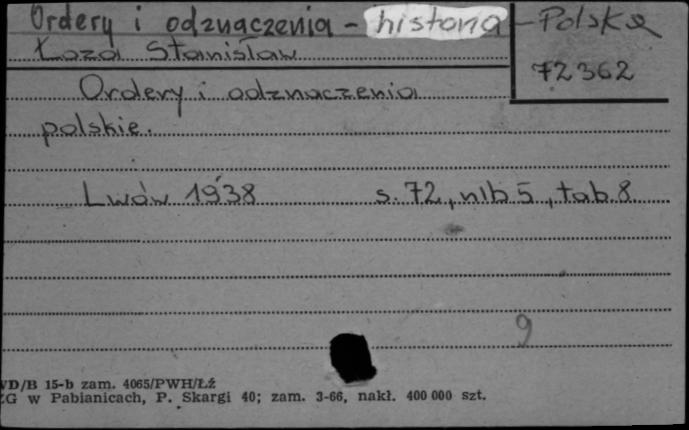 Ordery i odznaczenia - historia - Polska
Łoza Stanisław
72362
Ordery i odznaczenia
polskie.
Lwów 1938 s. 72, nlb 5, tab. 8
9
WD/B 15-b zam. 4065/PWH/Łź
ZG w Pabianicach, P. Skargi 40; zam. 3-66, nakł. 400 000 szt.